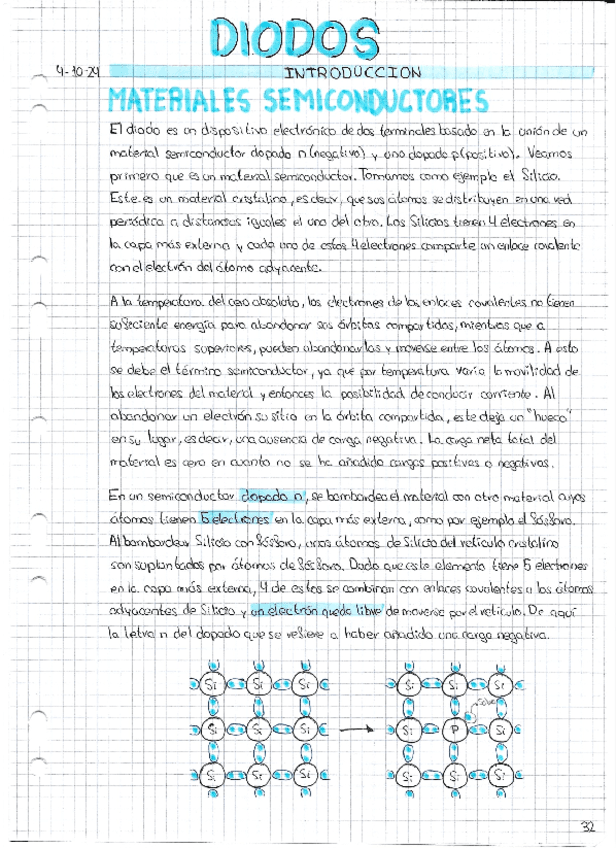 DIODOS
4-10-24
INTRODUCCION
MATERIALES SEMICONDUCTORES
El diodo es un dispositivo electrónico de dos terminales basado en la unión de un
material semiconductor dopado n (negativo) y uno dopado p (positivo). Veamos
primero que es un material semiconductor. Tomamos como ejemplo el Silicio.
Este es un material cristalino, es decir, que sus átomos se distribuyen en una red
periódica a distancias iguales el uno del otro. Los Silicios tienen 4 electrones en
la capa más externa y cada uno de estos 4 electrones comparte un enlace covalente
con el electrón del átomo adyacente.
A la temperatura del cero absoluto, los electrones de los enlaces covalentes no tienen
suficiente energía para abandonar sus órbitas compartidas, mientras que a
temperaturas superiores, pueden abandonarlas y moverse entre los átomos. A esto
se debe el término semiconductor, ya que por temperatura varía la movilidad de
los electrones del material y entonces la posibilidad de conducir corriente. Al
abandonar un electrón su sitio en la órbita compartida, este deja un "hueco"
en su lugar, es decir, una ausencia de carga negativa. La carga neta total del
material es cero en cuanto no se ha añadido cargas positivas o negativas.
En un semiconductor dopado n, se bombardea el material con otro material cuyos
átomos tienen 5 electrones en la capa más externa, como por ejemplo el fósforo.
Al bombardear Silicio con fósforo, unos átomos de Silicio del retículo cristalino
son suplantados por átomos de fósforo. Dado que este elemento tiene 5 electrones
en la capa más externa, 4 de estos se combinan con enlaces covalentes a los átomos
adyacentes de Silicio y un electrón queda libre de moverse por el retículo. De aquí
la letra n del dopado que se refiere a haber añadido una carga negativa.
Si Si Si Si Si Si
Si Si Si Si P Si
Si Si Si Si Si Si
32